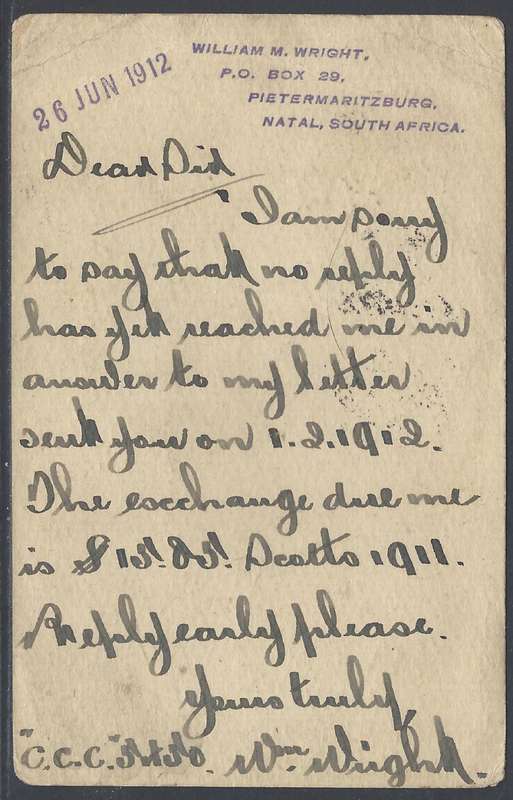 26 JUN 1912
WILLIAM M. WRIGHT,
P.O. BOX 29,
PIETERMARITZBURG,
NATAL, SOUTH AFRICA.
Dear Sir
I am sorry
to say that no reply
has yet reached me in
answer to my letter
sent you on 1.2.1912.
The exchange due me
is $ 15.85. Scotts 1911.
Reply early please.
Yours truly,
"C.C.C." Wm. Wright.